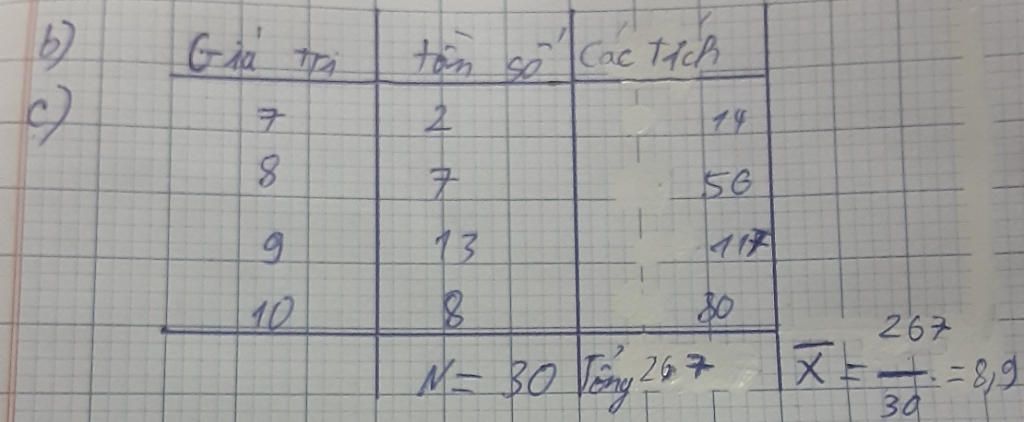 b) Giá trị tần số Các tích
c) 7 2 14
8 7 56
9 13 117
10 8 80
N = 30 Tổng 267 X̅ = 267/30 = 8,9